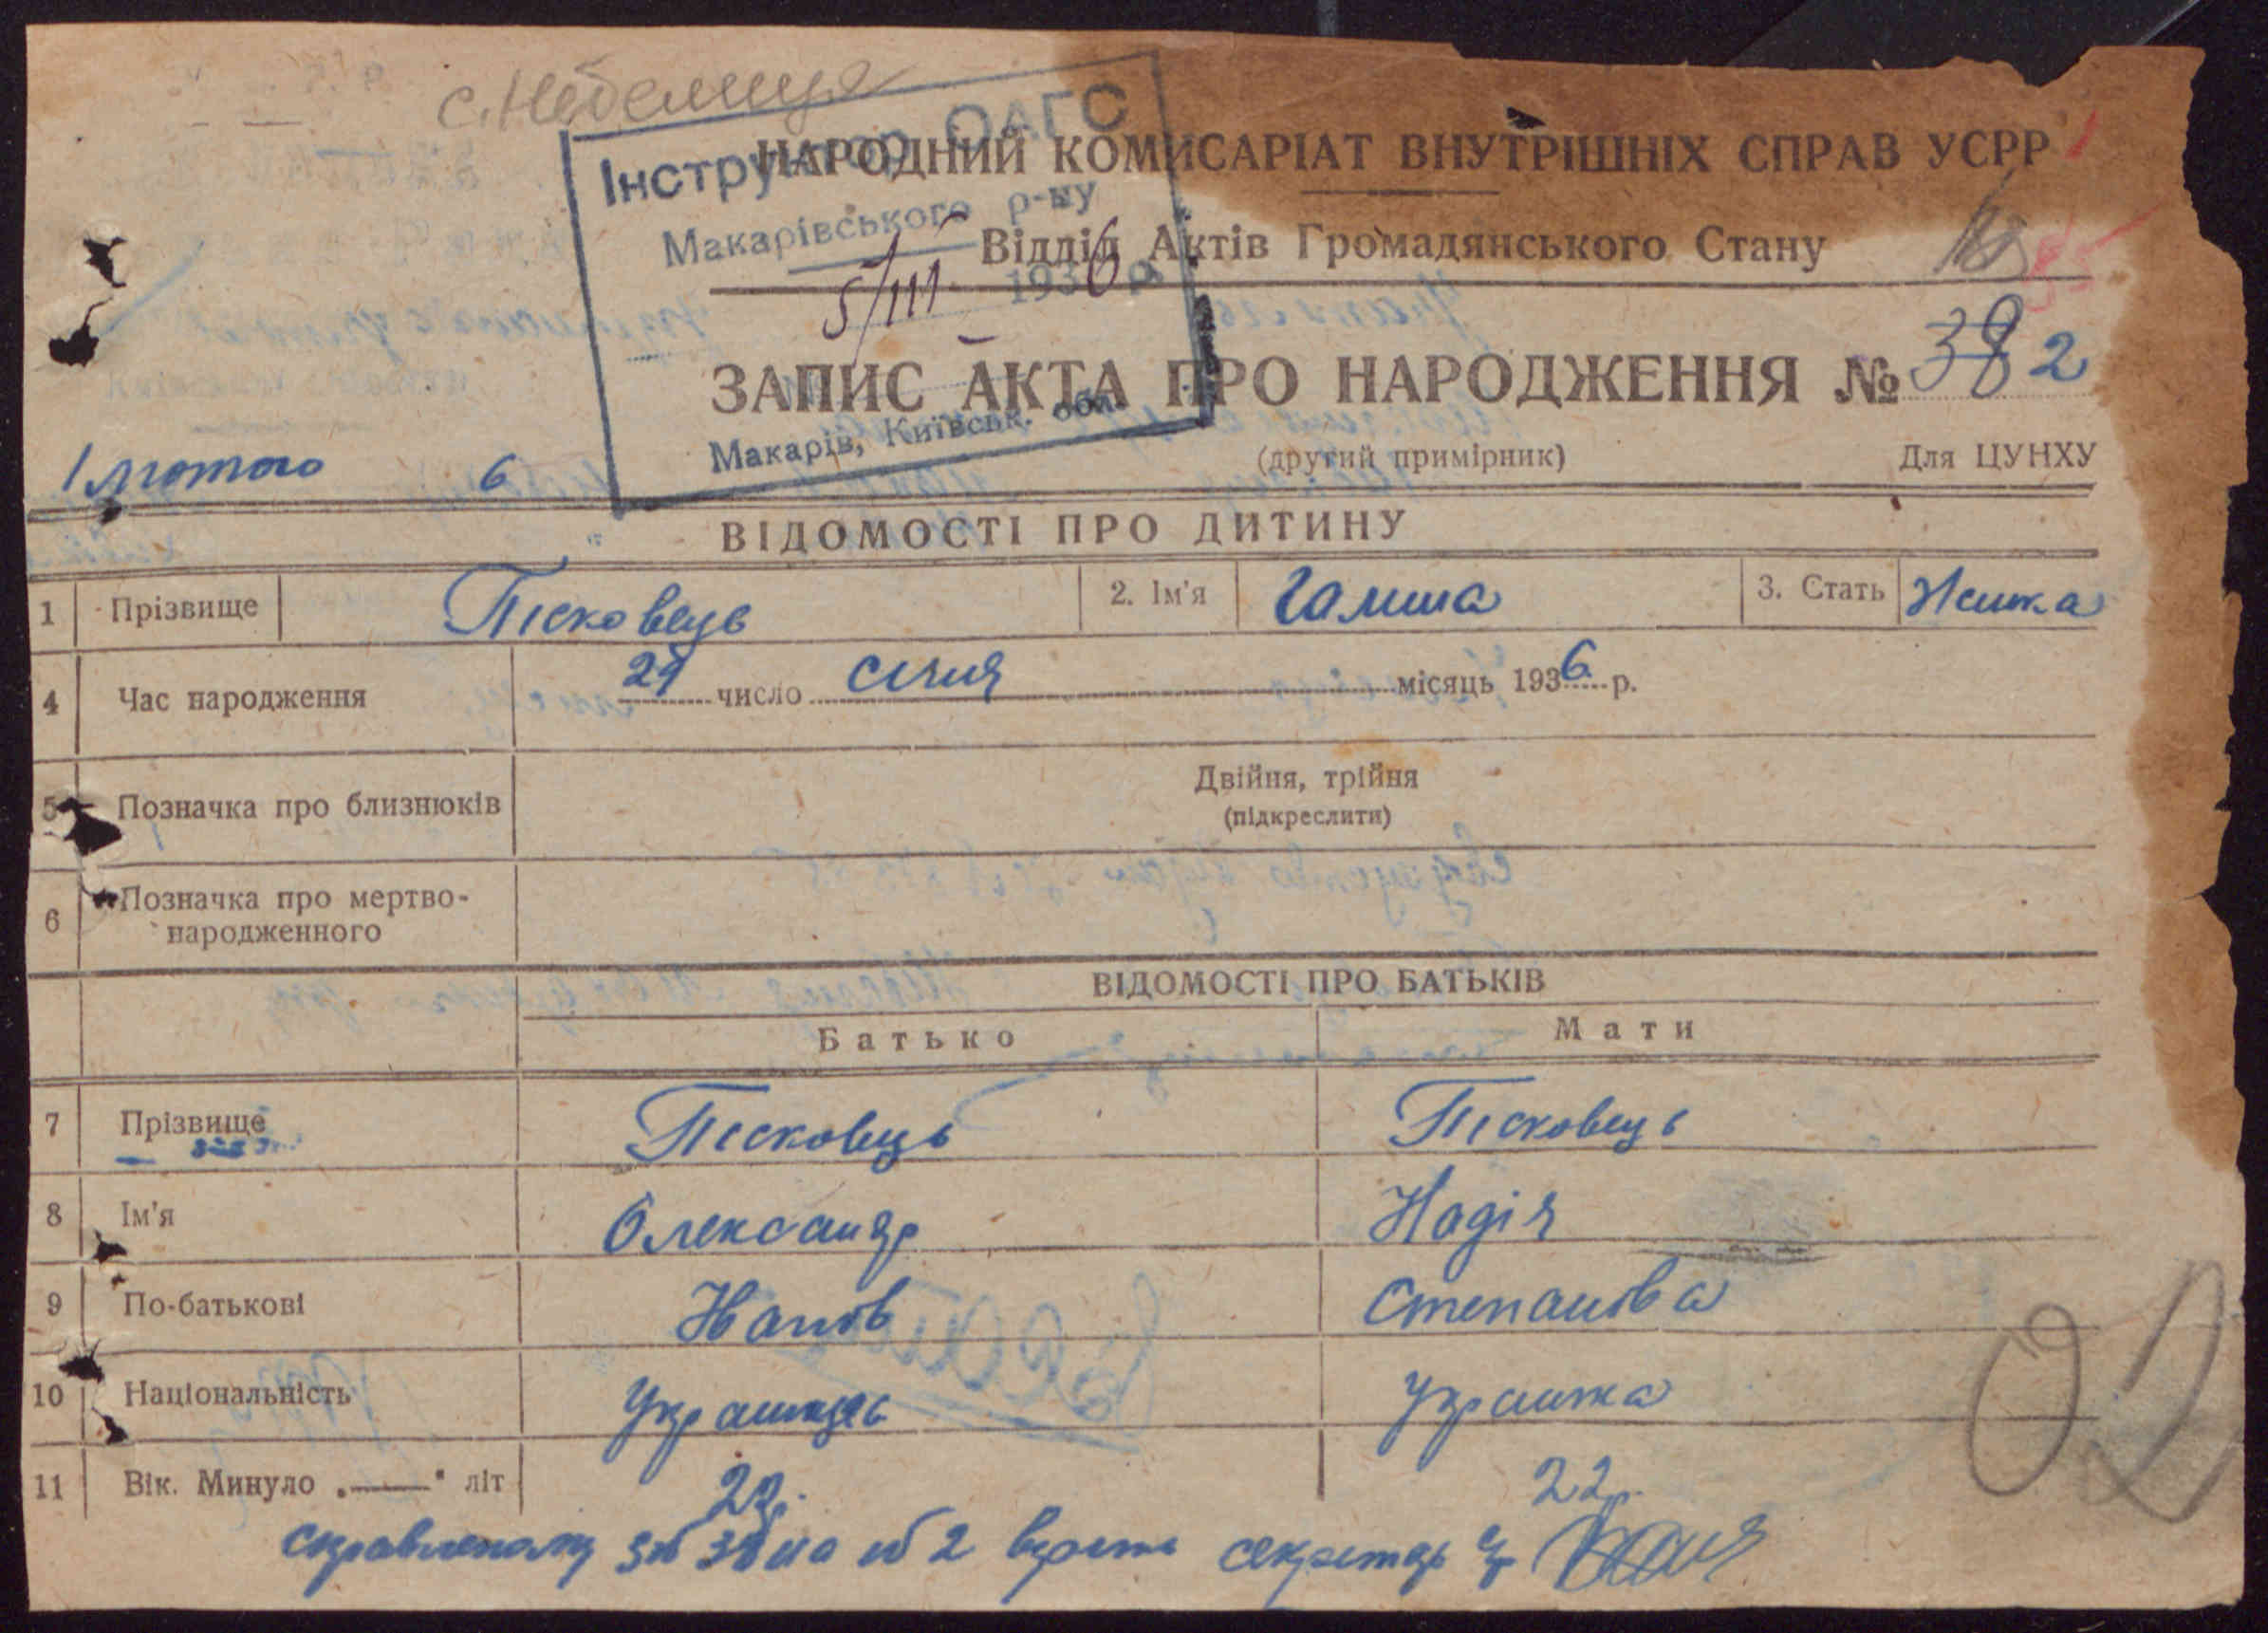 с. Небелиця
Інструктор ОАГС
Макарівського р-ну
5/III 1936 р.
Макарів, Київськ. обл.
НАРОДНИЙ КОМИСАРІАТ ВНУТРІШНІХ СПРАВ УСРР
Відділ Актів Громадянського Стану
ЗАПИС АКТА ПРО НАРОДЖЕННЯ № 38 2
(другий примірник) Для ЦУНХУ
1 лютого 6
ВІДОМОСТІ ПРО ДИТИНУ
1 Прізвище Пісковець 2. Ім'я Галина 3. Стать Жінка
4 Час народження 29 число січня місяць 1936 р.
5 Позначка про близнюків Двійня, трійня
(підкреслити)
6 Позначка про мертво-
народженного
ВІДОМОСТІ ПРО БАТЬКІВ
Батько Мати
7 Прізвище Пісковець Пісковець
8 Ім'я Олександр Надія
9 По-батькові Степанова
10 Національність Українець Українка
11 Вік. Минуло „—" літ 22р.
справленому з № 38 на № 2 вірити секретар
02